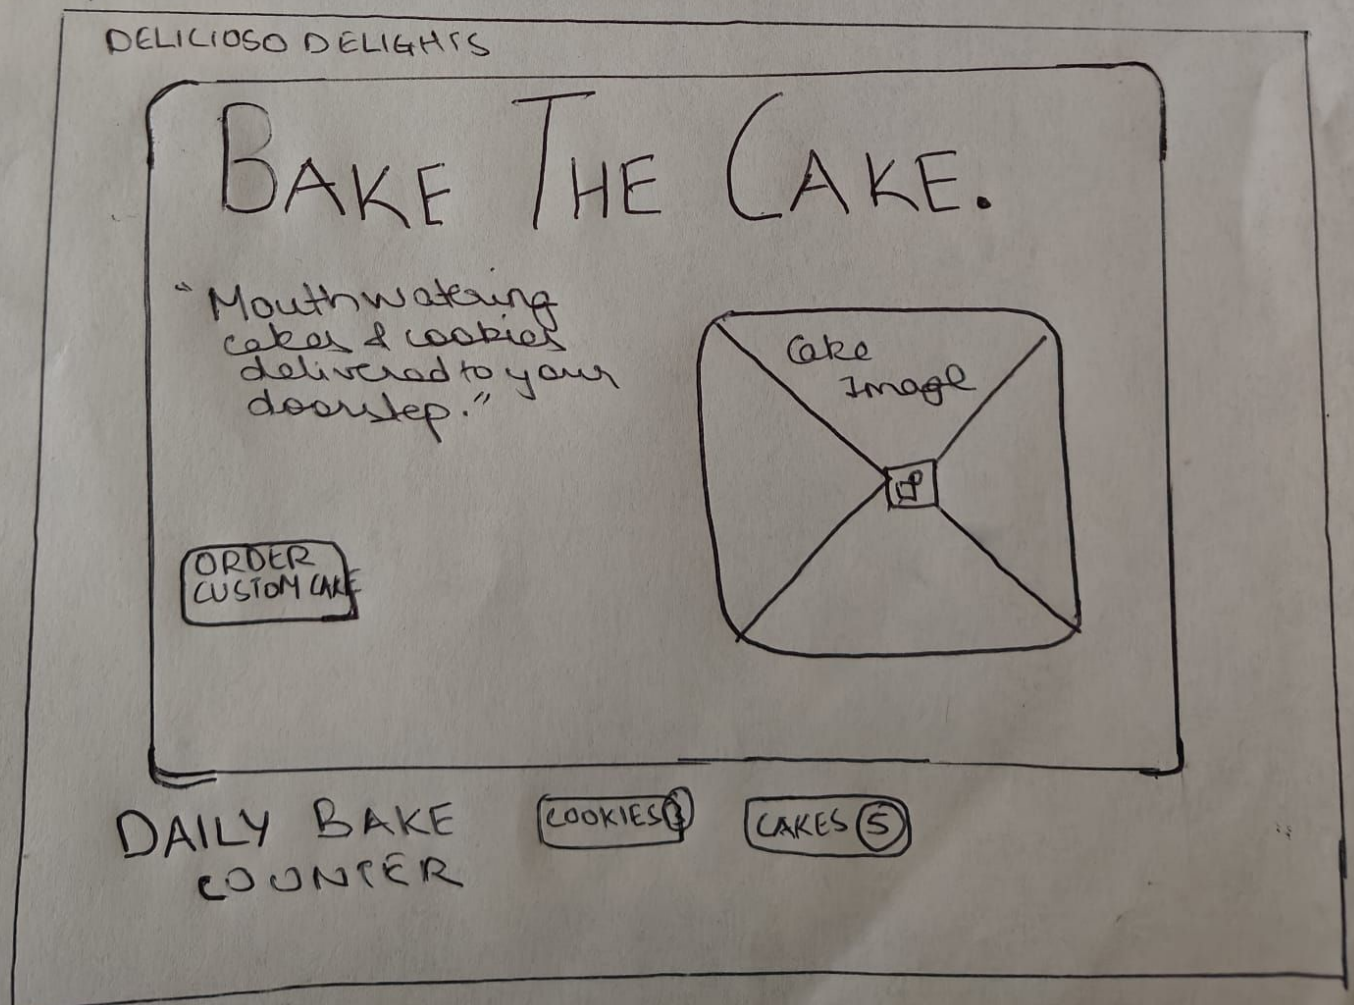 DELICIOSO DELIGHTS
BAKE THE CAKE.
"Mouthwatering
cakes & cookies
delivered to your
doorstep."
Cake
Image
ORDER
CUSTOM CAKE
DAILY BAKE
COUNTER
COOKIES
CAKES 5